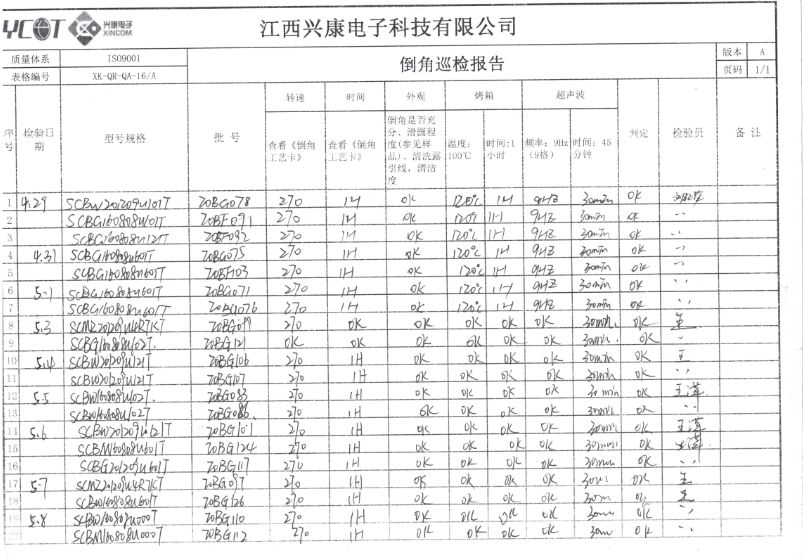 YCOT 兴康电子 XINCOM 江西兴康电子科技有限公司
质量体系 ISO9001 倒角巡检报告 版本 A
表格编号 XK-QR-QA-16/A 页码 1/1
序号 检验日期 型号规格 批号 转速 时间 外观 烤箱 超声波 判定 检验员 备注
查看《倒角工艺卡》 查看《倒角工艺卡》 倒角是否充分、滑圆程度(参见样品)、清洗露引线,清洁度 温度:100℃ 时间:1小时 频率:9Hz(9格) 时间:45分钟
1 4.29 SCBW201209U101T 20BG078 270 1H OK 120℃ 1H 9HZ 30min OK
2 SCBG160808U101T 20BF091 270 1H OK 120℃ 1H 9HZ 30min OK
3 SCBG160808U121T 20BF092 270 1H OK 120℃ 1H 9HZ 30min OK
4 SCBG160808U601T 20BG075 270 1H OK 120℃ 1H 9HZ 30min OK
5 SCBG160808U601T 20BF103 270 1H OK 120℃ 1H 9HZ 30min OK
6 5.1 SCBG160808U601T 20BG071 270 1H OK 120℃ 1H 9HZ 30min OK
7 SCBG160808U601T 20BG076 270 1H OK 120℃ 1H 9HZ 30min OK
8 5.3 SCMZ201209U4R7KT 270 OK OK OK OK OK 30min. OK 王
9 SCBG160808U102T. 20BG121 OK OK OK OK OK OK 30min. OK
10 5.4 SCBW201209U121T 20BG106 270 1H OK OK OK OK 30min OK 王
11 SCBW201209U121T 20BG107 270 1H OK OK OK OK 30min OK
12 5.5 SCBW160808U102T. 20BG083 270 1H OK OK OK OK 30min OK 王萍
13 SCBW160808U102T 20BG086. 270 1H OK OK OK OK 30min OK
14 5.6 20BG101 270 1H OK OK OK OK 30min OK 王萍
15 SCBM160808U601T 20BG124 270 1H OK OK OK OK 30min OK 王萍
16 SCBG201209U601T 20BG117 270 1H OK OK OK OK 30min OK
17 5.7 SCMZ201209U4R7KT 20BG097 270 1H OK OK OK OK OK 王
18 SCBW160808U601T 20BG126 270 1H OK OK OK OK OK 王
19 5.8 SCBW160808U000T 20BG110 270 1H OK OK OK OK OK
SCBM160808U000T 20BG112 270 1H OK OK OK OK OK